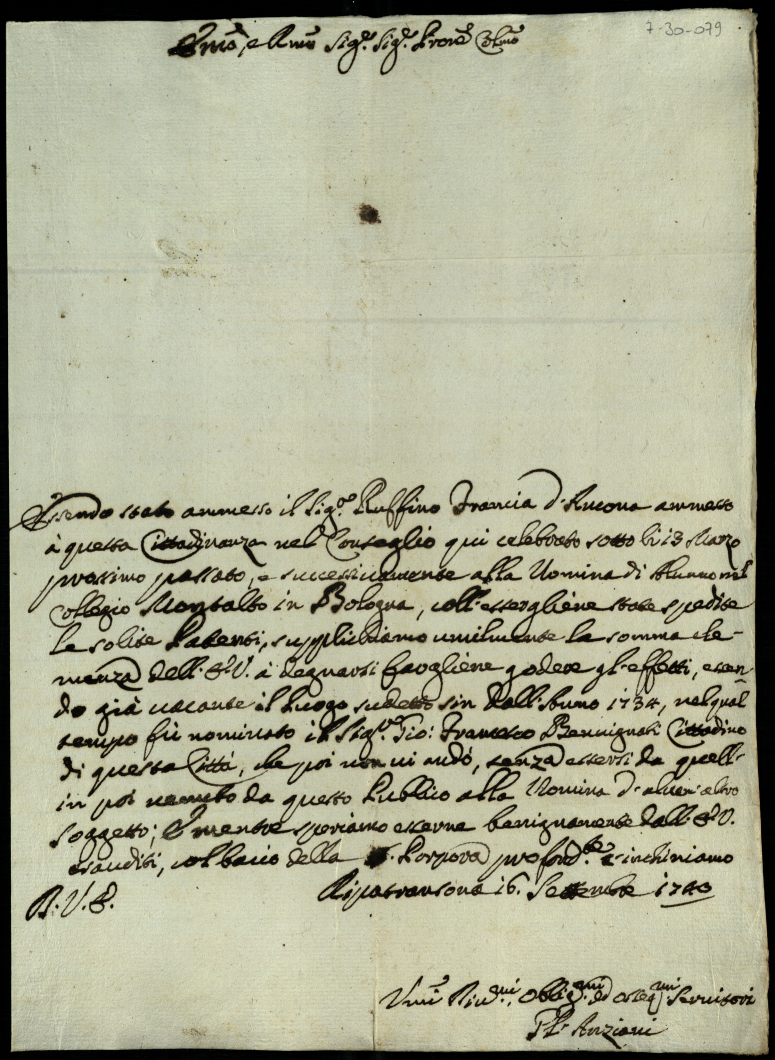 7-30-079
Emo, e Rmo Sig.r Sig.r Prone Colmo
Essendo stato ammesso il Sig.r Ruffino Francia d'Ancona ammesso
à questa Cittadinanza nel Conseglio qui celebrato sotto li 13 Marzo
prossimo passato, e successivamente alla Nomina di Alunno nel
Collegio Montalto in Bologna, coll'essergliene state spedite
le solite Patenti, supplichiamo umilmente la somma cle-
menza dell'E.V. à degnarsi fargliene godere gl'effetti, essen-
do già vacante il Luogo sudetto sin dall'Anno 1734, nel qual
tempo fù nominato il Sig.r Gio: Francesco Benvignati Cittadino
di questa Città, che poi non vi andò, senza essersi da quell'
in poi venuto da questo Publico alla Nomina d'alcun altro
soggetto; E mentre speriamo esserne benignamente dall'E.V.
esauditi, col bacio della S. Porpora profond.te c'inchiniamo
D. V. E. Ripatransona 16. Settembre 1740
Umi Divmi, Obligmi ed osseqmi Servitori
Gl'Anziani